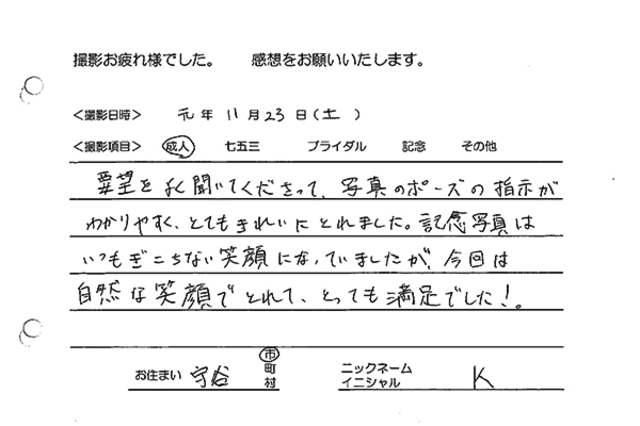 撮影お疲れ様でした。 感想をお願いいたします。
<撮影日時> 元 年 11 月 23 日 (土)
<撮影項目> 成人 七五三 ブライダル 記念 その他
要望をよく聞いてくださって、写真のポーズの指示が
わかりやすく、とてもきれいにとれました。記念写真は
いつもぎこちない笑顔になっていましたが、今回は
自然な笑顔でとれて、とっても満足でした!。
お住まい 守谷 市 町 村 ニックネーム イニシャル K